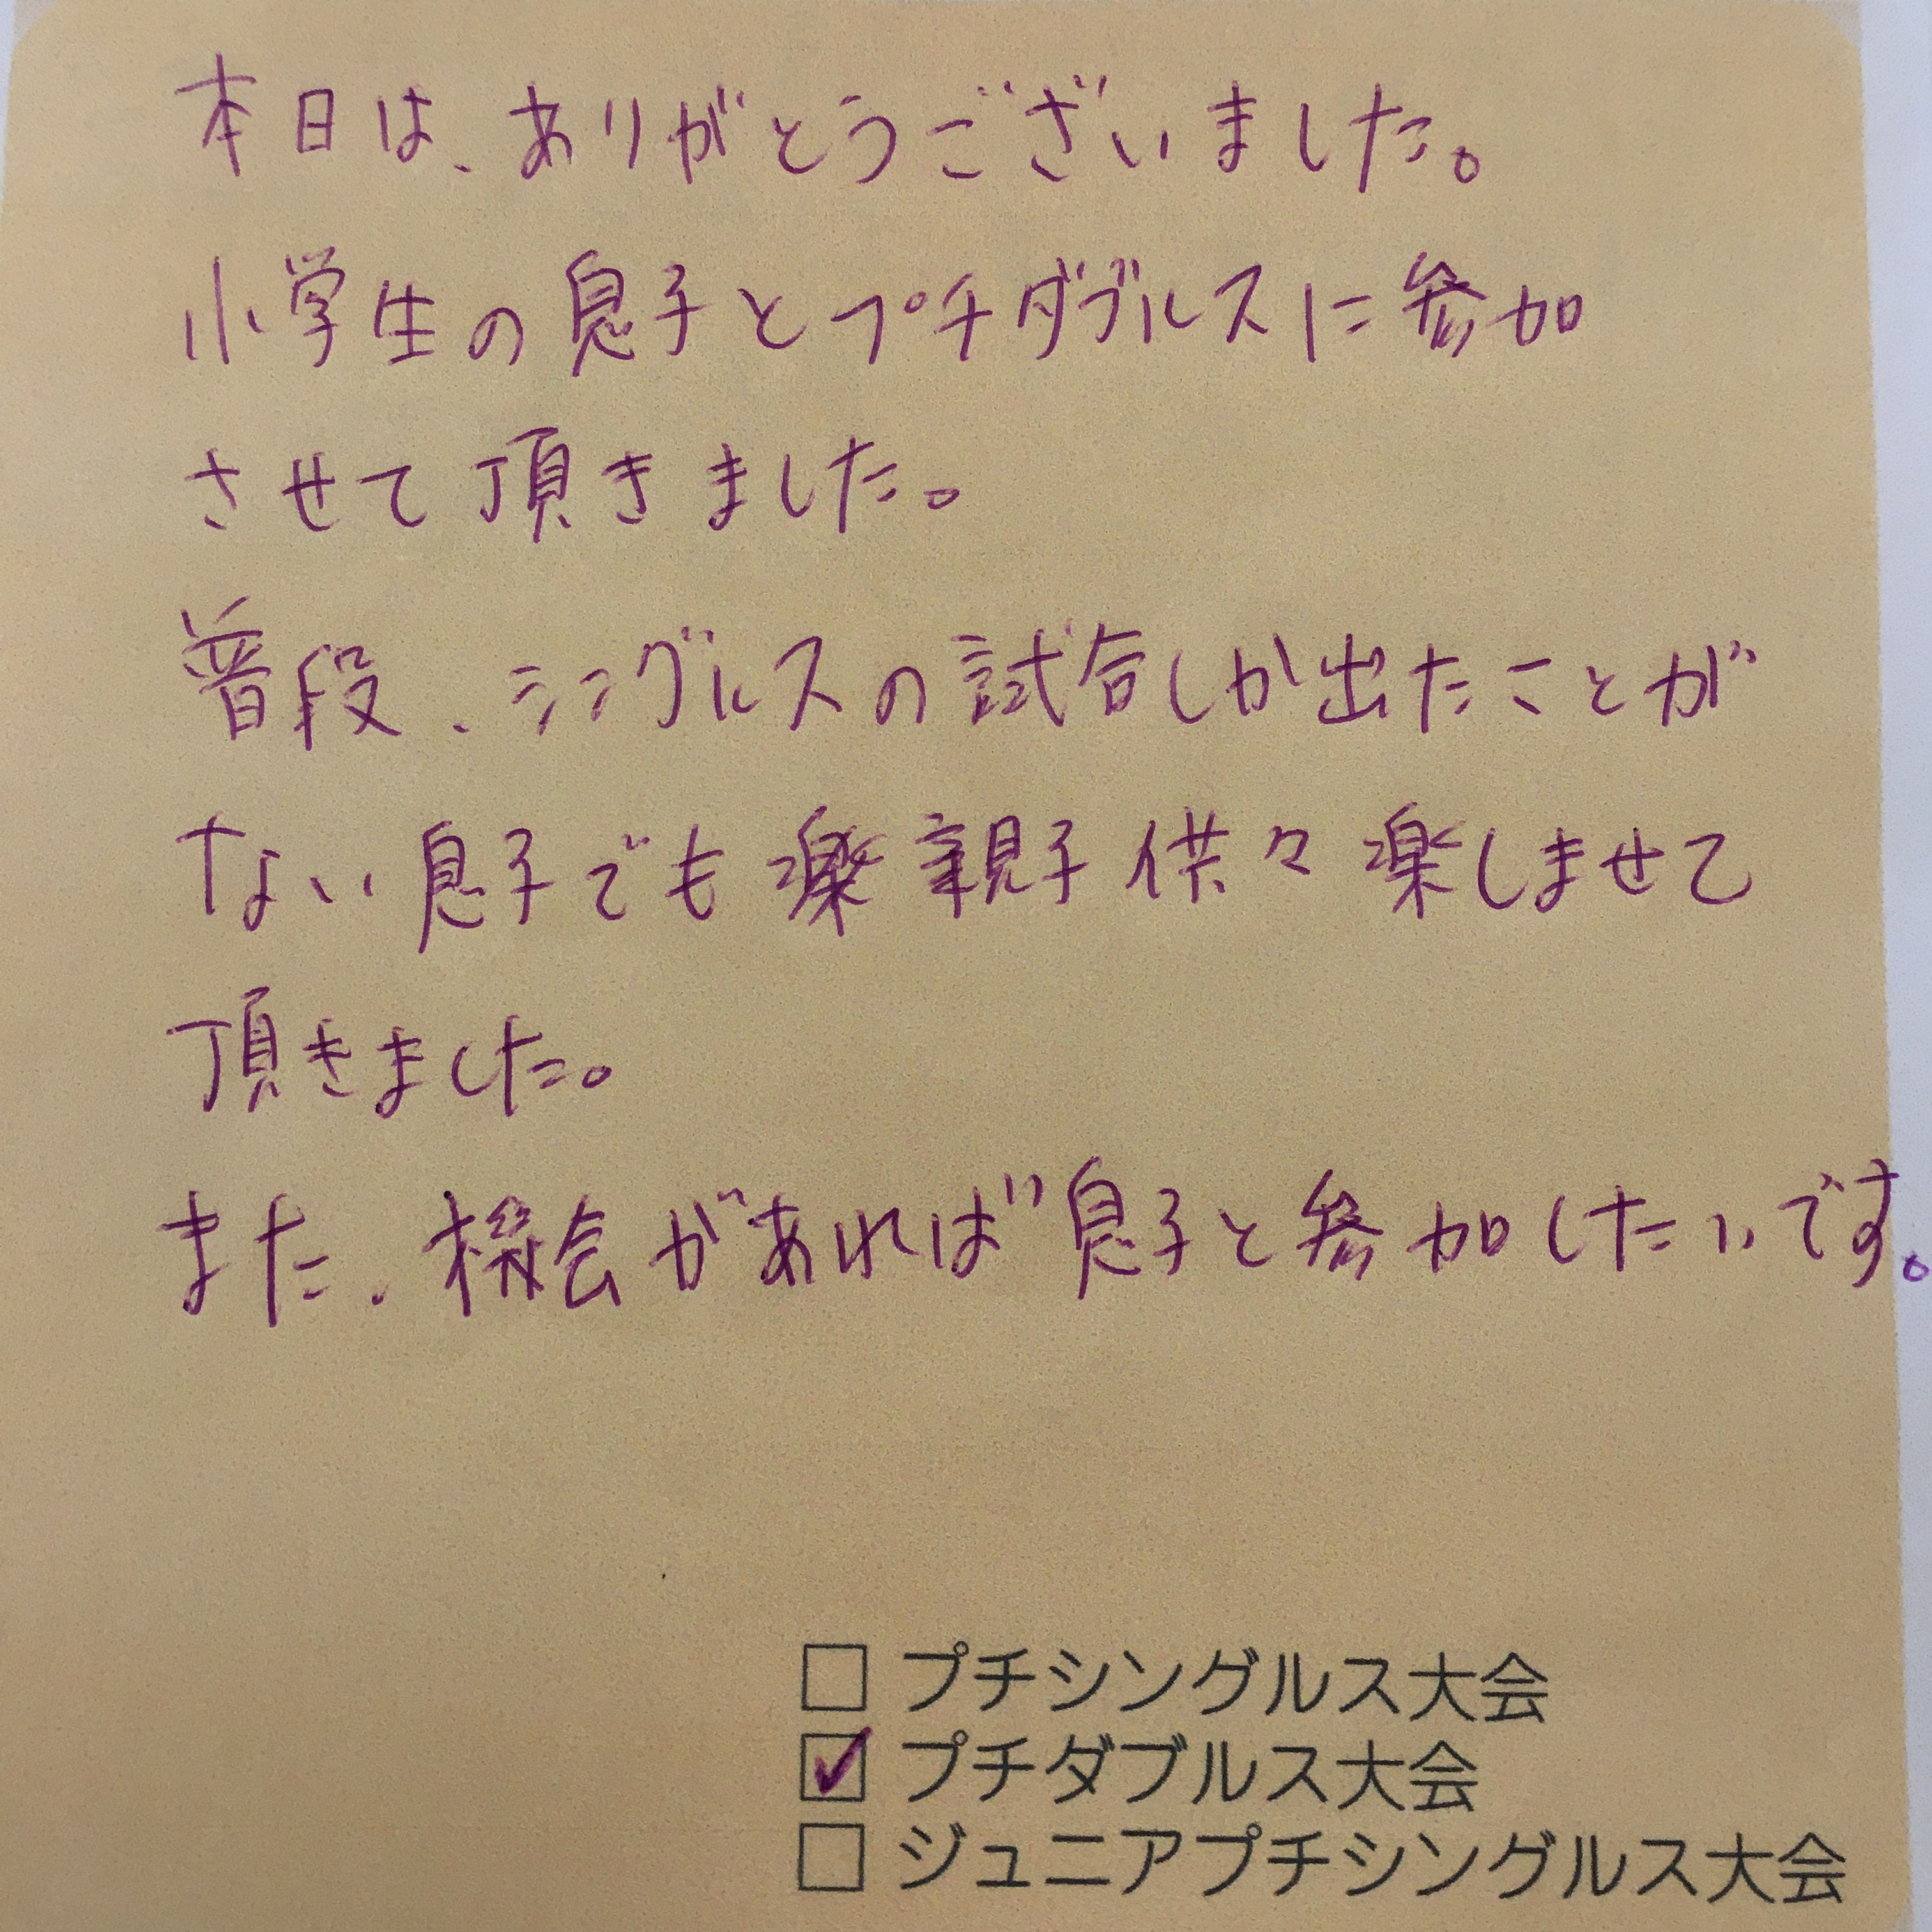 本日は、ありがとうございました。
小学生の息子とプチダブルスに参加
させて頂きました。
普段、シングルスの試合しか出たことが
ない息子でも楽親子供々楽しませて
頂きました。
また、機会があれば息子と参加したいです。
□ プチシングルス大会
☑ プチダブルス大会
□ ジュニアプチシングルス大会